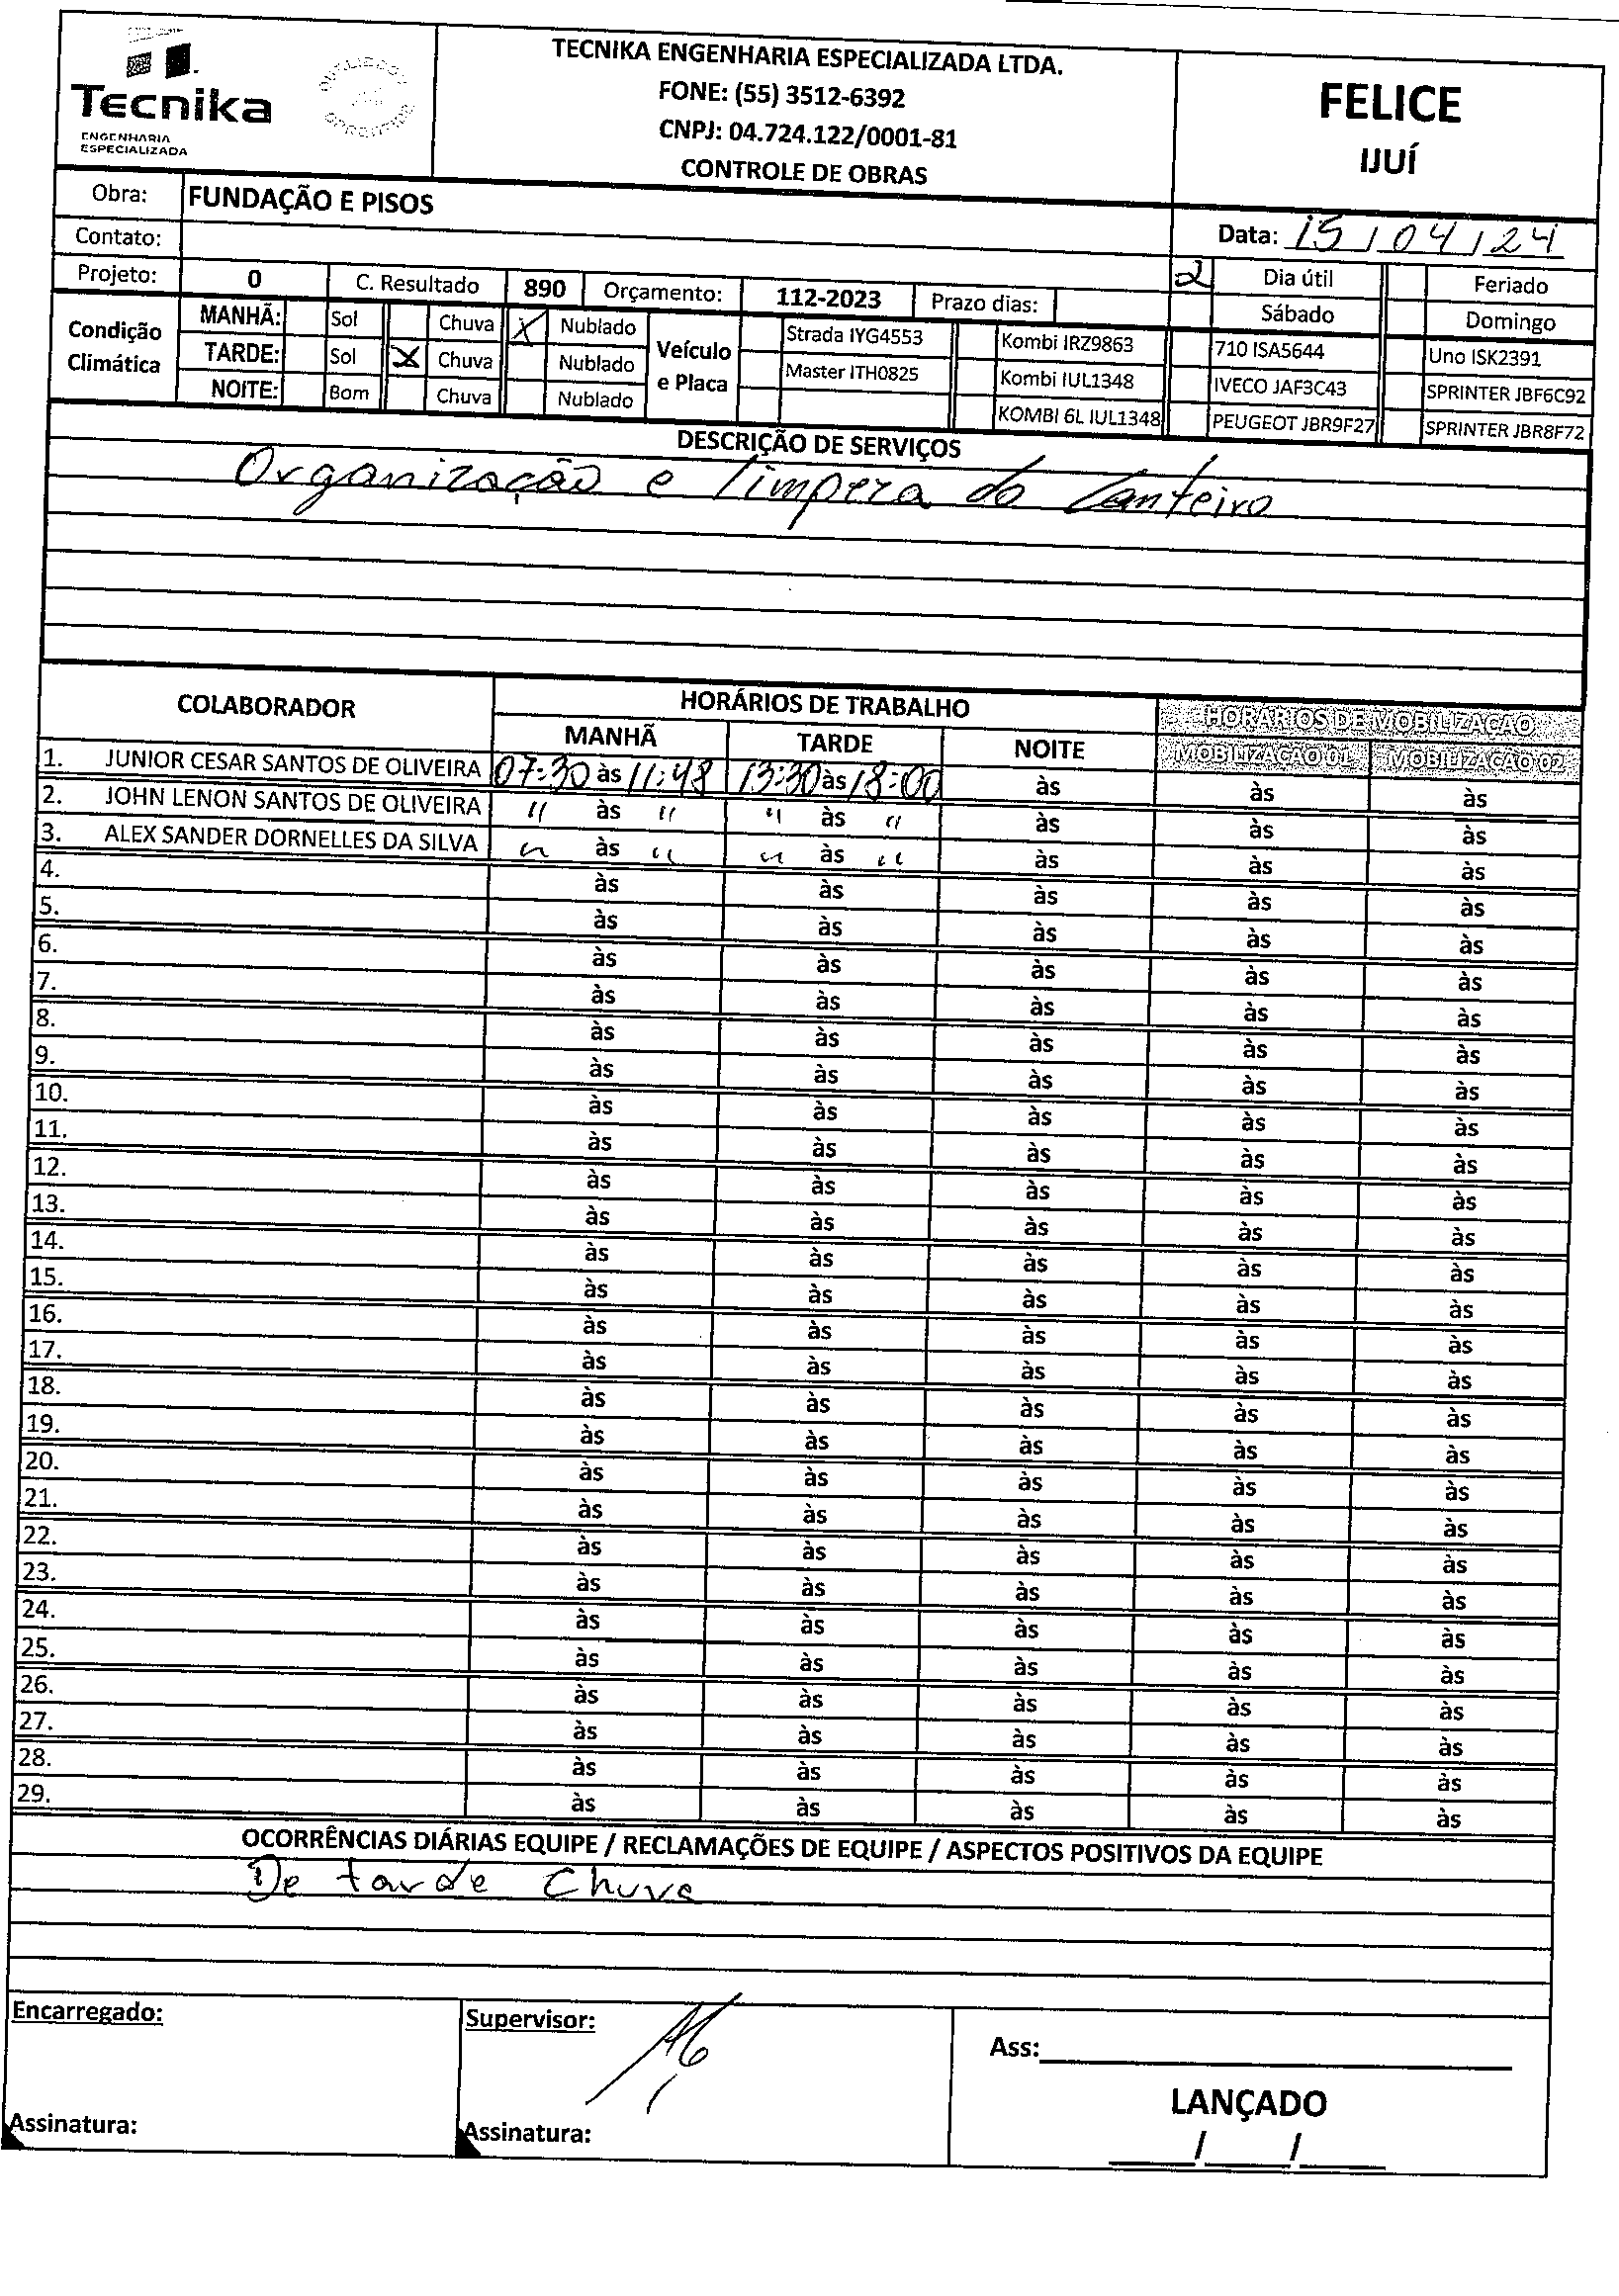 Tecnika
ENGENHARIA
ESPECIALIZADA
TECNIKA ENGENHARIA ESPECIALIZADA LTDA.
FONE: (55) 3512-6392
CNPJ: 04.724.122/0001-81
CONTROLE DE OBRAS
FELICE
IJUÍ
Obra: FUNDAÇÃO E PISOS
Contato:
Data: 15/04/24
Projeto: 0 C. Resultado 890 Orçamento: 112-2023 Prazo dias: 2 Dia útil Feriado
Sábado Domingo
Condição Climática
MANHÃ: Sol Chuva X Nublado
TARDE: Sol X Chuva Nublado
NOITE: Bom Chuva Nublado
Veículo e Placa
Strada IYG4553 Kombi IRZ9863 710 ISA5644 Uno ISK2391
Master ITH0825 Kombi IUL1348 IVECO JAF3C43 SPRINTER JBF6C92
KOMBI 6L IUL1348 PEUGEOT JBR9F27 SPRINTER JBR8F72
DESCRIÇÃO DE SERVIÇOS
Organização e limpeza do Canteiro
COLABORADOR HORÁRIOS DE TRABALHO HORÁRIOS DE MOBILIZAÇÃO
MANHÃ TARDE NOITE MOBILIZAÇÃO 01 MOBILIZAÇÃO 02
1. JUNIOR CESAR SANTOS DE OLIVEIRA 07:30 às 11:48 13:30 às 18:00 às às às
2. JOHN LENON SANTOS DE OLIVEIRA " às " " às " às às às
3. ALEX SANDER DORNELLES DA SILVA " às " " às " às às às
4. às às às às às
5. às às às às às
6. às às às às às
7. às às às às às
8. às às às às às
9. às às às às às
10. às às às às às
11. às às às às às
12. às às às às às
13. às às às às às
14. às às às às às
15. às às às às às
16. às às às às às
17. às às às às às
18. às às às às às
19. às às às às às
20. às às às às às
21. às às às às às
22. às às às às às
23. às às às às às
24. às às às às às
25. às às às às às
26. às às às às às
27. às às às às às
28. às às às às às
29. às às às às às
OCORRÊNCIAS DIÁRIAS EQUIPE / RECLAMAÇÕES DE EQUIPE / ASPECTOS POSITIVOS DA EQUIPE
De tarde Chuva
Encarregado:
Supervisor:
Ass:
LANÇADO
Assinatura:
Assinatura:
/ /